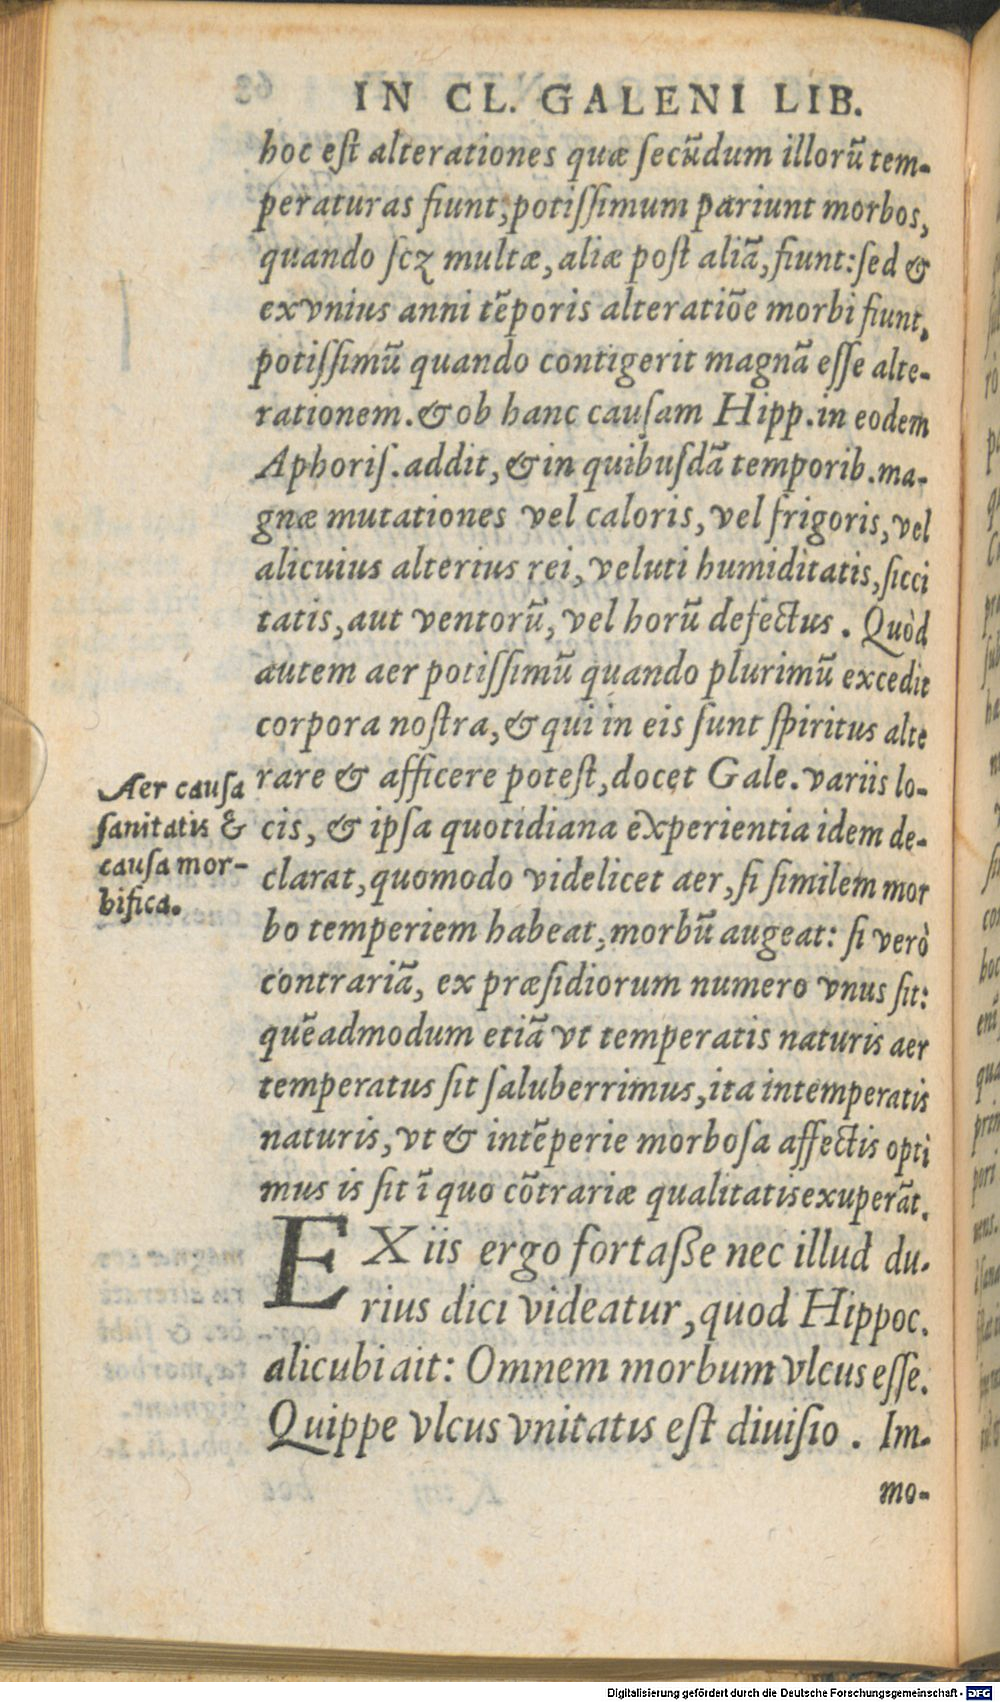 IN CL. GALENI LIB.
hoc est alterationes quæ secũdum illorũ tem-
peraturas fiunt, potissimum pariunt morbos,
quando scz multæ, aliæ post aliã, fiunt: sed &
ex vnius anni tẽporis alteratiõe morbi fiunt,
potissimũ quando contigerit magnã esse alte-
rationem. & ob hanc causam Hipp. in eodem
Aphoris. addit, & in quibusdã temporib. ma-
gnæ mutationes vel caloris, vel frigoris, vel
alicuius alterius rei, veluti humiditatis, sicci
tatis, aut ventorũ, vel horũ defectus. Quòd
autem aer potissimũ quando plurimũ excedit
corpora nostra, & qui in eis sunt spiritus alte
rare & afficere potest, docet Gale. variis lo-
cis, & ipsa quotidiana experientia idem de-
clarat, quomodo videlicet aer, si similem mor
bo temperiem habeat, morbũ augeat: si verò
contrariã, ex præsidiorum numero vnus sit:
quẽadmodum etiã vt temperatis naturis aer
temperatus sit saluberrimus, ita intemperatis
naturis, vt & intẽperie morbosa affectis opti
mus is sit ĩ quo cõtrariæ qualitatis exuperãt.
Aer causa
sanitatis &
causa mor-
bifica.
EX iis ergo fortasse nec illud du-
rius dici videatur, quod Hippoc.
alicubi ait: Omnem morbum vlcus esse.
Quippe vlcus vnitatis est diuisio. Im-
mo-
Digitalisierung gefördert durch die Deutsche Forschungsgemeinschaft - DFG